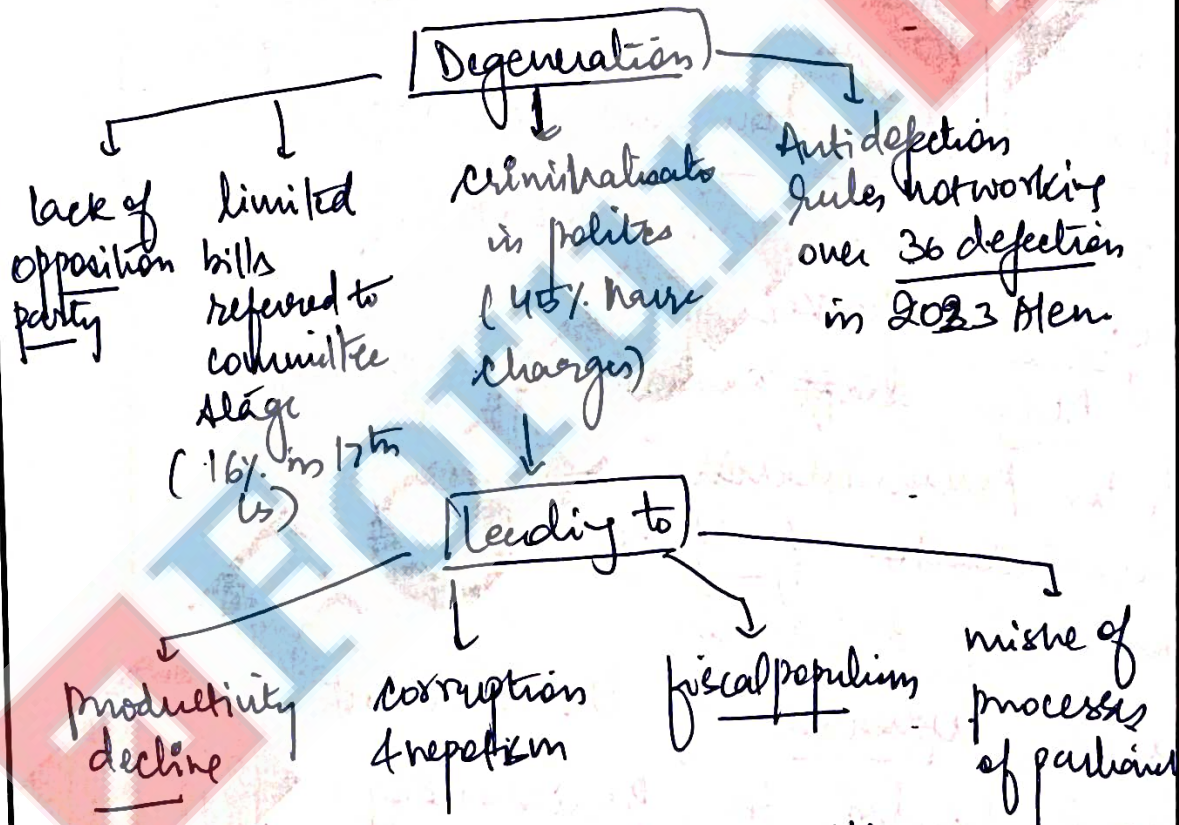 Degeneration
lack of
opposition
party
limited
bills
referred to
committee
stage
(16% in 17th
LS)
criminalisato
in politcs
(45% have
charges)
Antidefection
rules not working
over 36 defection
in 2023
Leading to
productivity
decline
corruption
& nepotism
fiscal populism
of
processes
of
Forum